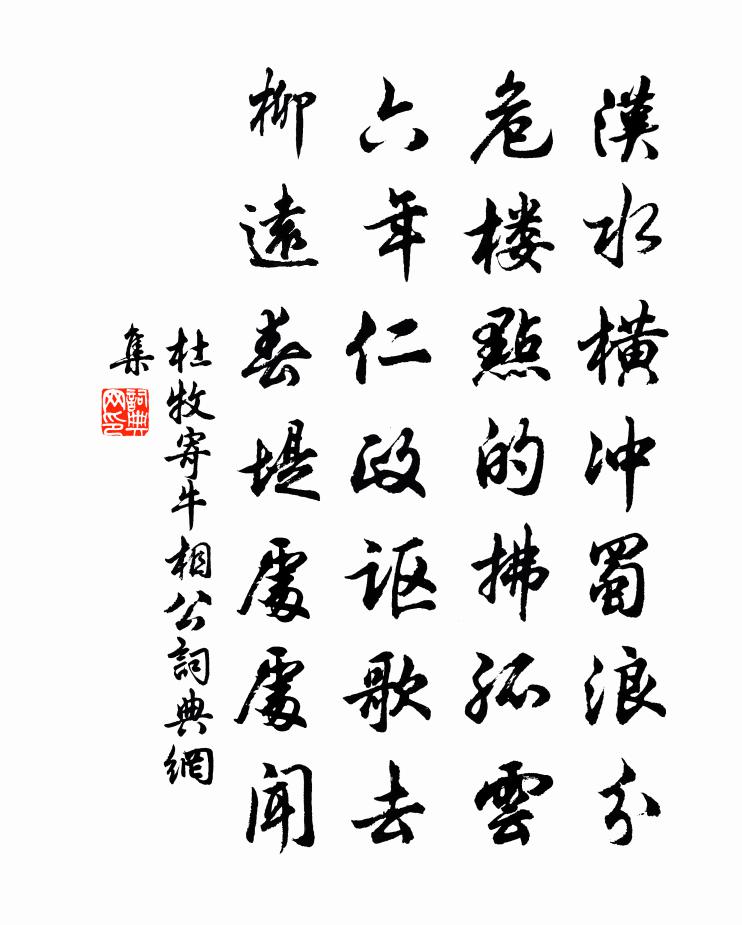 漢水橫冲蜀浪分
危楼點的拂孤雲
六年仁政讴歌去
柳遠春堤處處闻
杜牧寄牛相公詞典網
集
詞典
网印